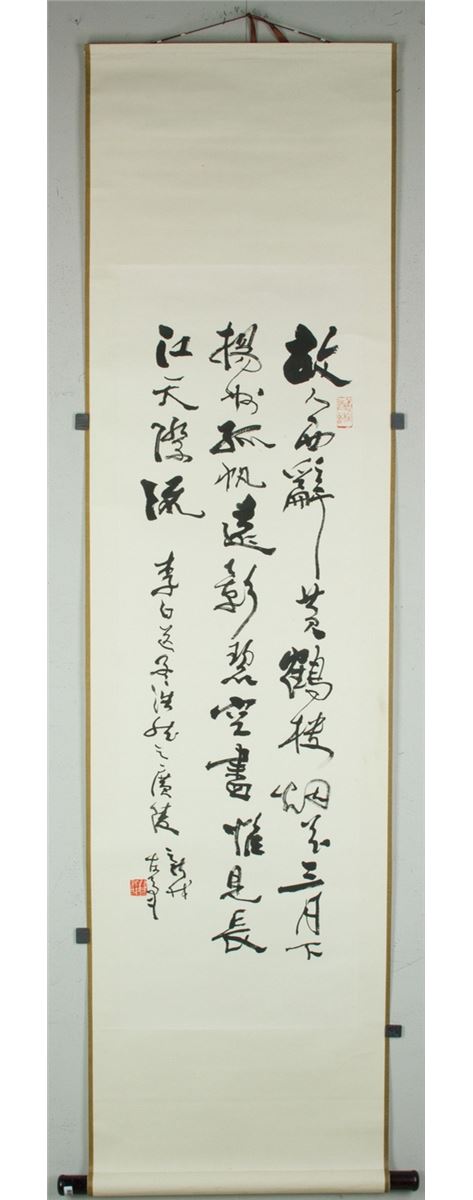 故人西辭黄鶴樓烟花三月下
揚州孤帆遠影碧空盡惟見長
江天際流
李白送孟浩然之廣陵